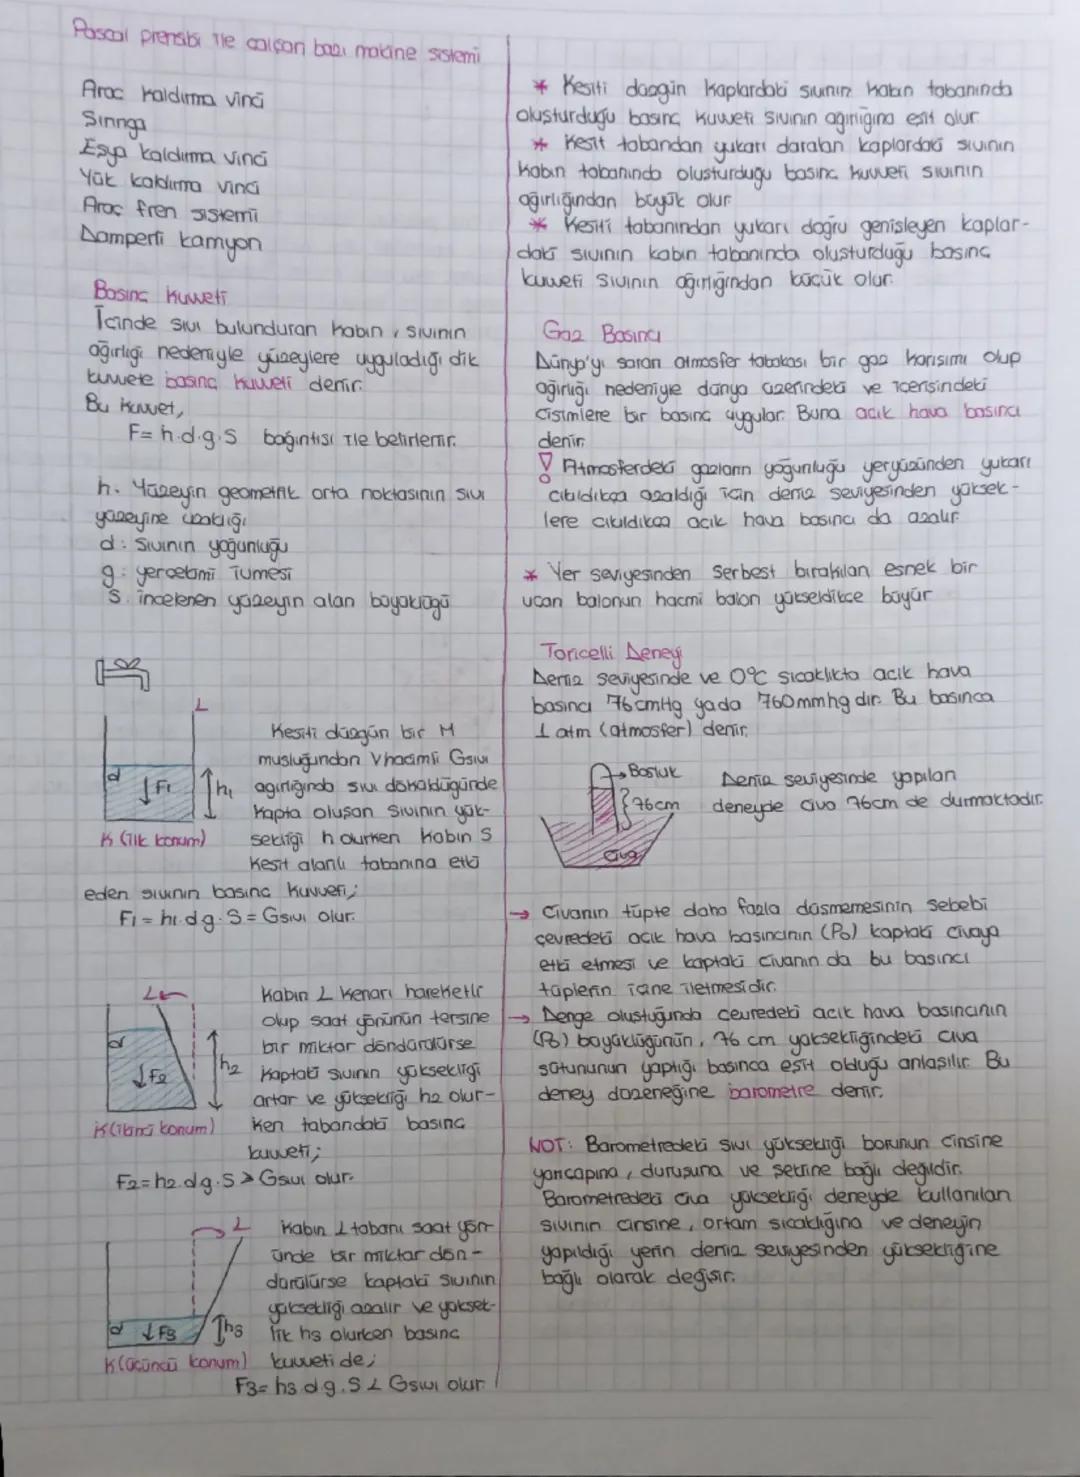 Pascal prensibi ile çalışan bazı makine sistemi
Araç kaldırma vinci
Şırınga
Eşya kaldırma vinci
Yük kaldırma vinci
Araç fren sistemi
Damperli kamyon
Basınç kuvveti
İçinde sıvı bulunduran kabın, sıvının
ağırlığı nedeniyle yüzeylere uyguladığı dik
kuvvete basınç kuvveti denir.
Bu kuvvet,
F= h.d.g.S bağıntısı ile belirlenir.
h. Yüzeyin geometrik orta noktasının sıvı
yüzeyine uzaklığı
d: Sıvının yoğunluğu
g: yerçekimi ivmesi
S. incelenen yüzeyin alan büyüklüğü
L
d
↓F1
h1
K (ilk konum)
Kesiti düzgün bir M
musluğundan V hacimli Gsıvı
agırlığında sıvı döküldüğünde
kapta oluşan sıvının yük-
sekliği h olurken kabın S
kesit alanlı tabanına etki
eden sıvının basınç kuvveti;
F1 = h1.d.g.S = Gsıvı olur.
L
d
↓F2
h2
K(ikinci konum)
Kabın L kenarı hareketli
olup saat yönünün tersine
bir miktar döndürülürse
kaptaki sıvının yüksekliği
artar ve yüksekliği h2 olur-
ken tabandaki basınç
kuvveti;
F2=h2.d.g.S > Gsıvı olur.
L
d
↓F3
h3
K(üçüncü konum)
Kabın L tabanı saat yön-
ünde bir miktar dön-
dürülürse kaptaki sıvının
yüksekliği azalır ve yüksek-
lik h3 olurken basınç
kuvveti de;
F3= h3.d.g.S < Gsıvı olur.
* Kesiti düzgün kaplardaki sıvının kabın tabanında
oluşturduğu basınç kuvveti sıvının ağırlığına eşit olur
* Kesit tabandan yukarı daralan kaplardaki sıvının
kabın tabanında oluşturduğu basınç kuvveti sıvının
ağırlığından büyük olur
* Kesiti tabanından yukarı doğru genişleyen kaplar-
daki sıvının kabın tabanında oluşturduğu basınç
kuvveti sıvının ağırlığından küçük olur.
Gaz Basıncı
Dünya'yı saran atmosfer tabakası bir gaz karışımı olup
ağırlığı nedeniyle dünya üzerindeki ve içerisindeki
cisimlere bir basınç uygular. Buna açık hava basıncı
denir.
! Atmosferdeki gazların yoğunluğu yeryüzünden yukarı
çıkıldıkça azaldığı için deniz seviyesinden yüksek-
lere çıkıldıkça açık hava basıncı da azalır
* Yer seviyesinden serbest bırakılan esnek bir
uçan balonun hacmi balon yükseldikçe büyür
Toricelli Deneyi
Deniz seviyesinde ve 0°C sıcaklıkta açık hava
basıncı 76cmHg yada 760mmhg dır. Bu basınca
1 atm (atmosfer) denir.
Boşluk
76cm
Cıva
Deniz seviyesinde yapılan
deneyde civa 76cm de durmaktadır.
→ Civanın tüpte daha fazla düşmemesinin sebebi
çevredeki açık hava basıncının (P0) kaptaki civaya
etki etmesi ve kaptaki civanın da bu basıncı
tüplerin içine iletmesidir.
→ Denge oluştuğunda çevredeki açık hava basıncının
(P0) büyüklüğünün, 76 cm yüksekliğindeki cıva
sütununun yaptığı basınca eşit olduğu anlaşılır. Bu
deney düzeneğine barometre denir.
NOT: Barometredeki sıvı yüksekliği borunun cinsine
yarıçapına, duruşuna ve şekline bağlı değildir.
Barometredeki cıva yüksekliği deneyde kullanılan
sıvının cinsine, ortam sıcaklığına ve deneyin
yapıldığı yerin deniz seviyesinden yüksekliğine
bağlı olarak değişir.